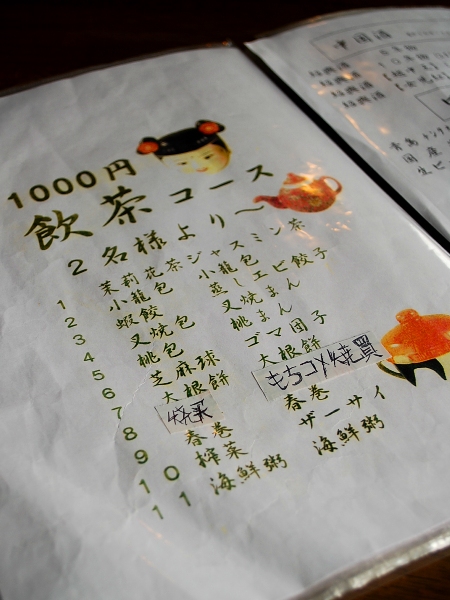 1000円
飲茶コース
2名様より〜
1 茉莉花茶 ジャスミン茶
2 小龍包 小龍包
3 蝦餃 蒸しエビ餃子
4 叉焼包 叉焼まん
5 桃包 桃まん
6 芝麻球 ゴマ団子
7 大根餅 大根餅
8 焼売 もちコメ焼買
9 春巻 春巻
10 搾菜 ザーサイ
11 海鮮粥 海鮮粥
中国酒
紹興酒
紹興酒
紹興酒
青島
国産
生ビ